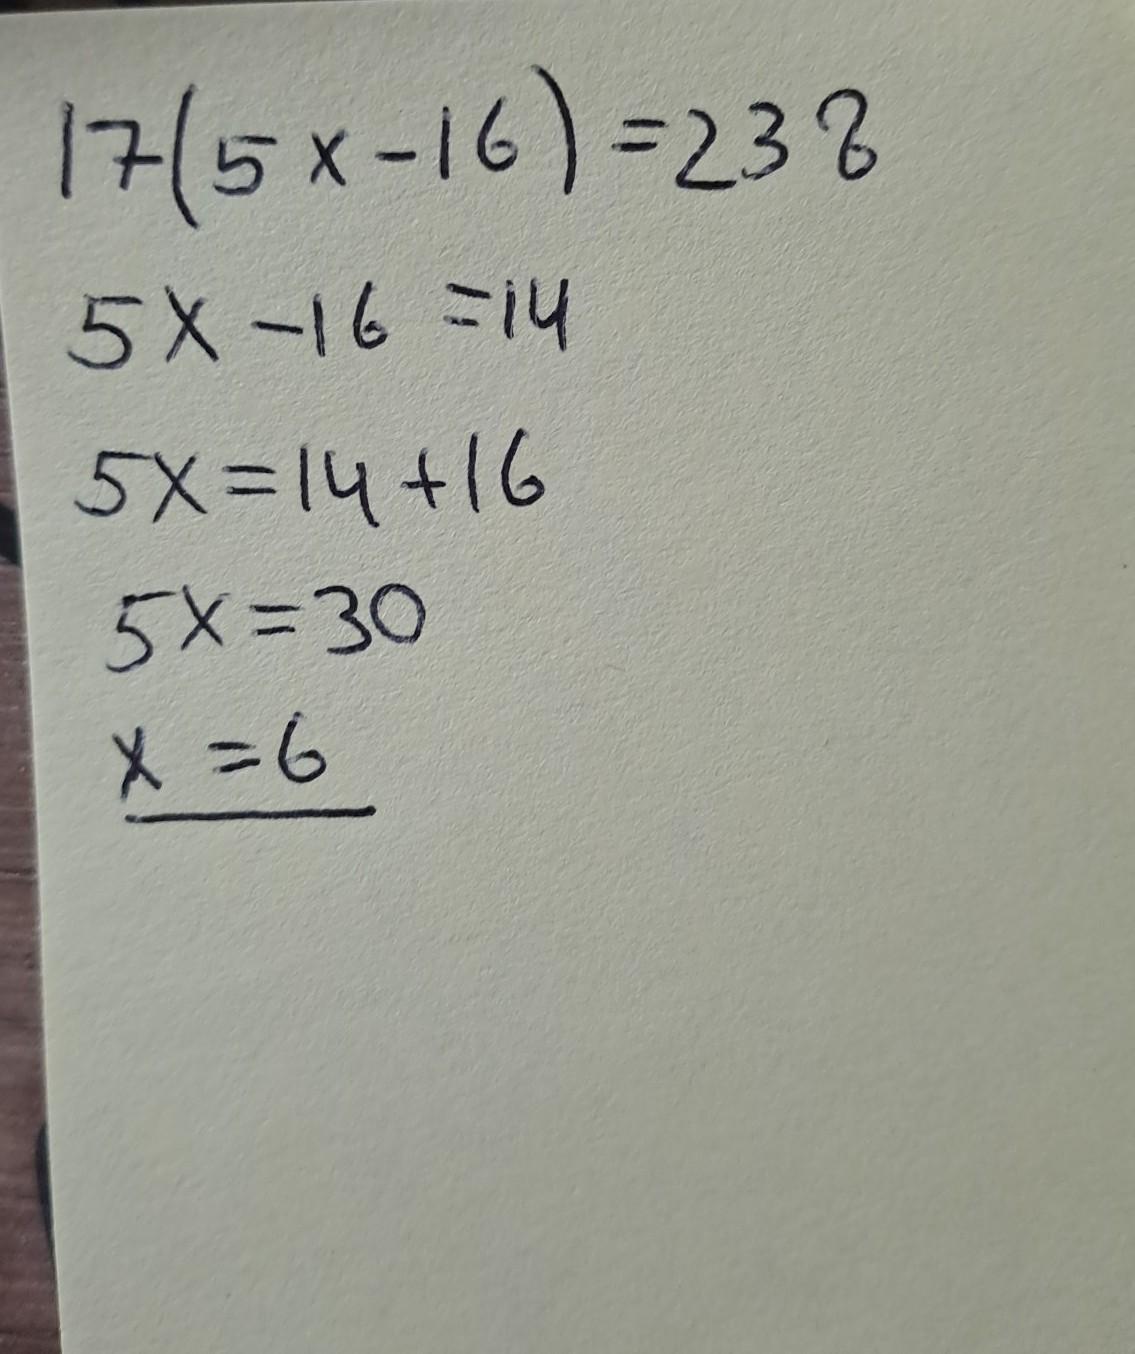 17(5x-16)=238
5x-16=14
5x=14+16
5x=30
x=6